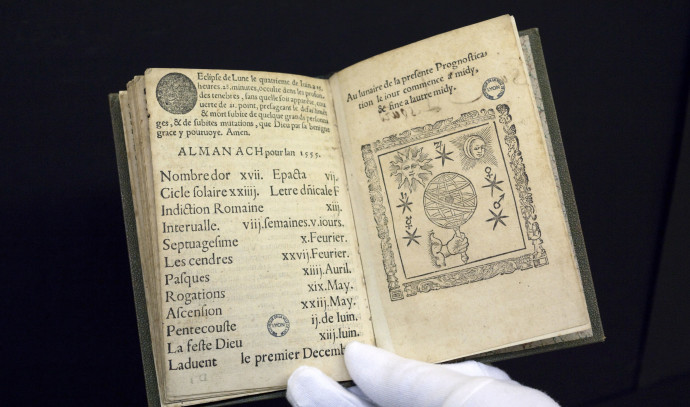 Eclipse de Lune le quatrieme de Iuin, a
heures.23.minutes, occulte dens les profun
des tenebres, sans quelle soit apparue, cou
uerte de 21. point, presageant le desachemēt
& mort subite de quelque grands personna
ges, & de subites mutations, que Dieu par sa benigne
grace y pouruoye. Amen.
ALMANACH pour lan 1555.
Nombre dor xvii. Epacta vij.
Cicle solaire xxiij. Letre dñicale F
Indiction Romaine xiij.
Interualle. viij.semaines.v.iours.
Septuagesime x.Feurier.
Les cendres xxvij.Feurier.
Pasques xiiij.Auril.
Rogations xix.May.
Ascension xxiij.May.
Pentecouste ij.de Iuin.
La feste Dieu xiij.Iuin.
Laduent le premier Decemb
Au lunaire de la presente Prognostica-
tion le iour commence a midy,
& fine a lautre midy.
LYON
LYON